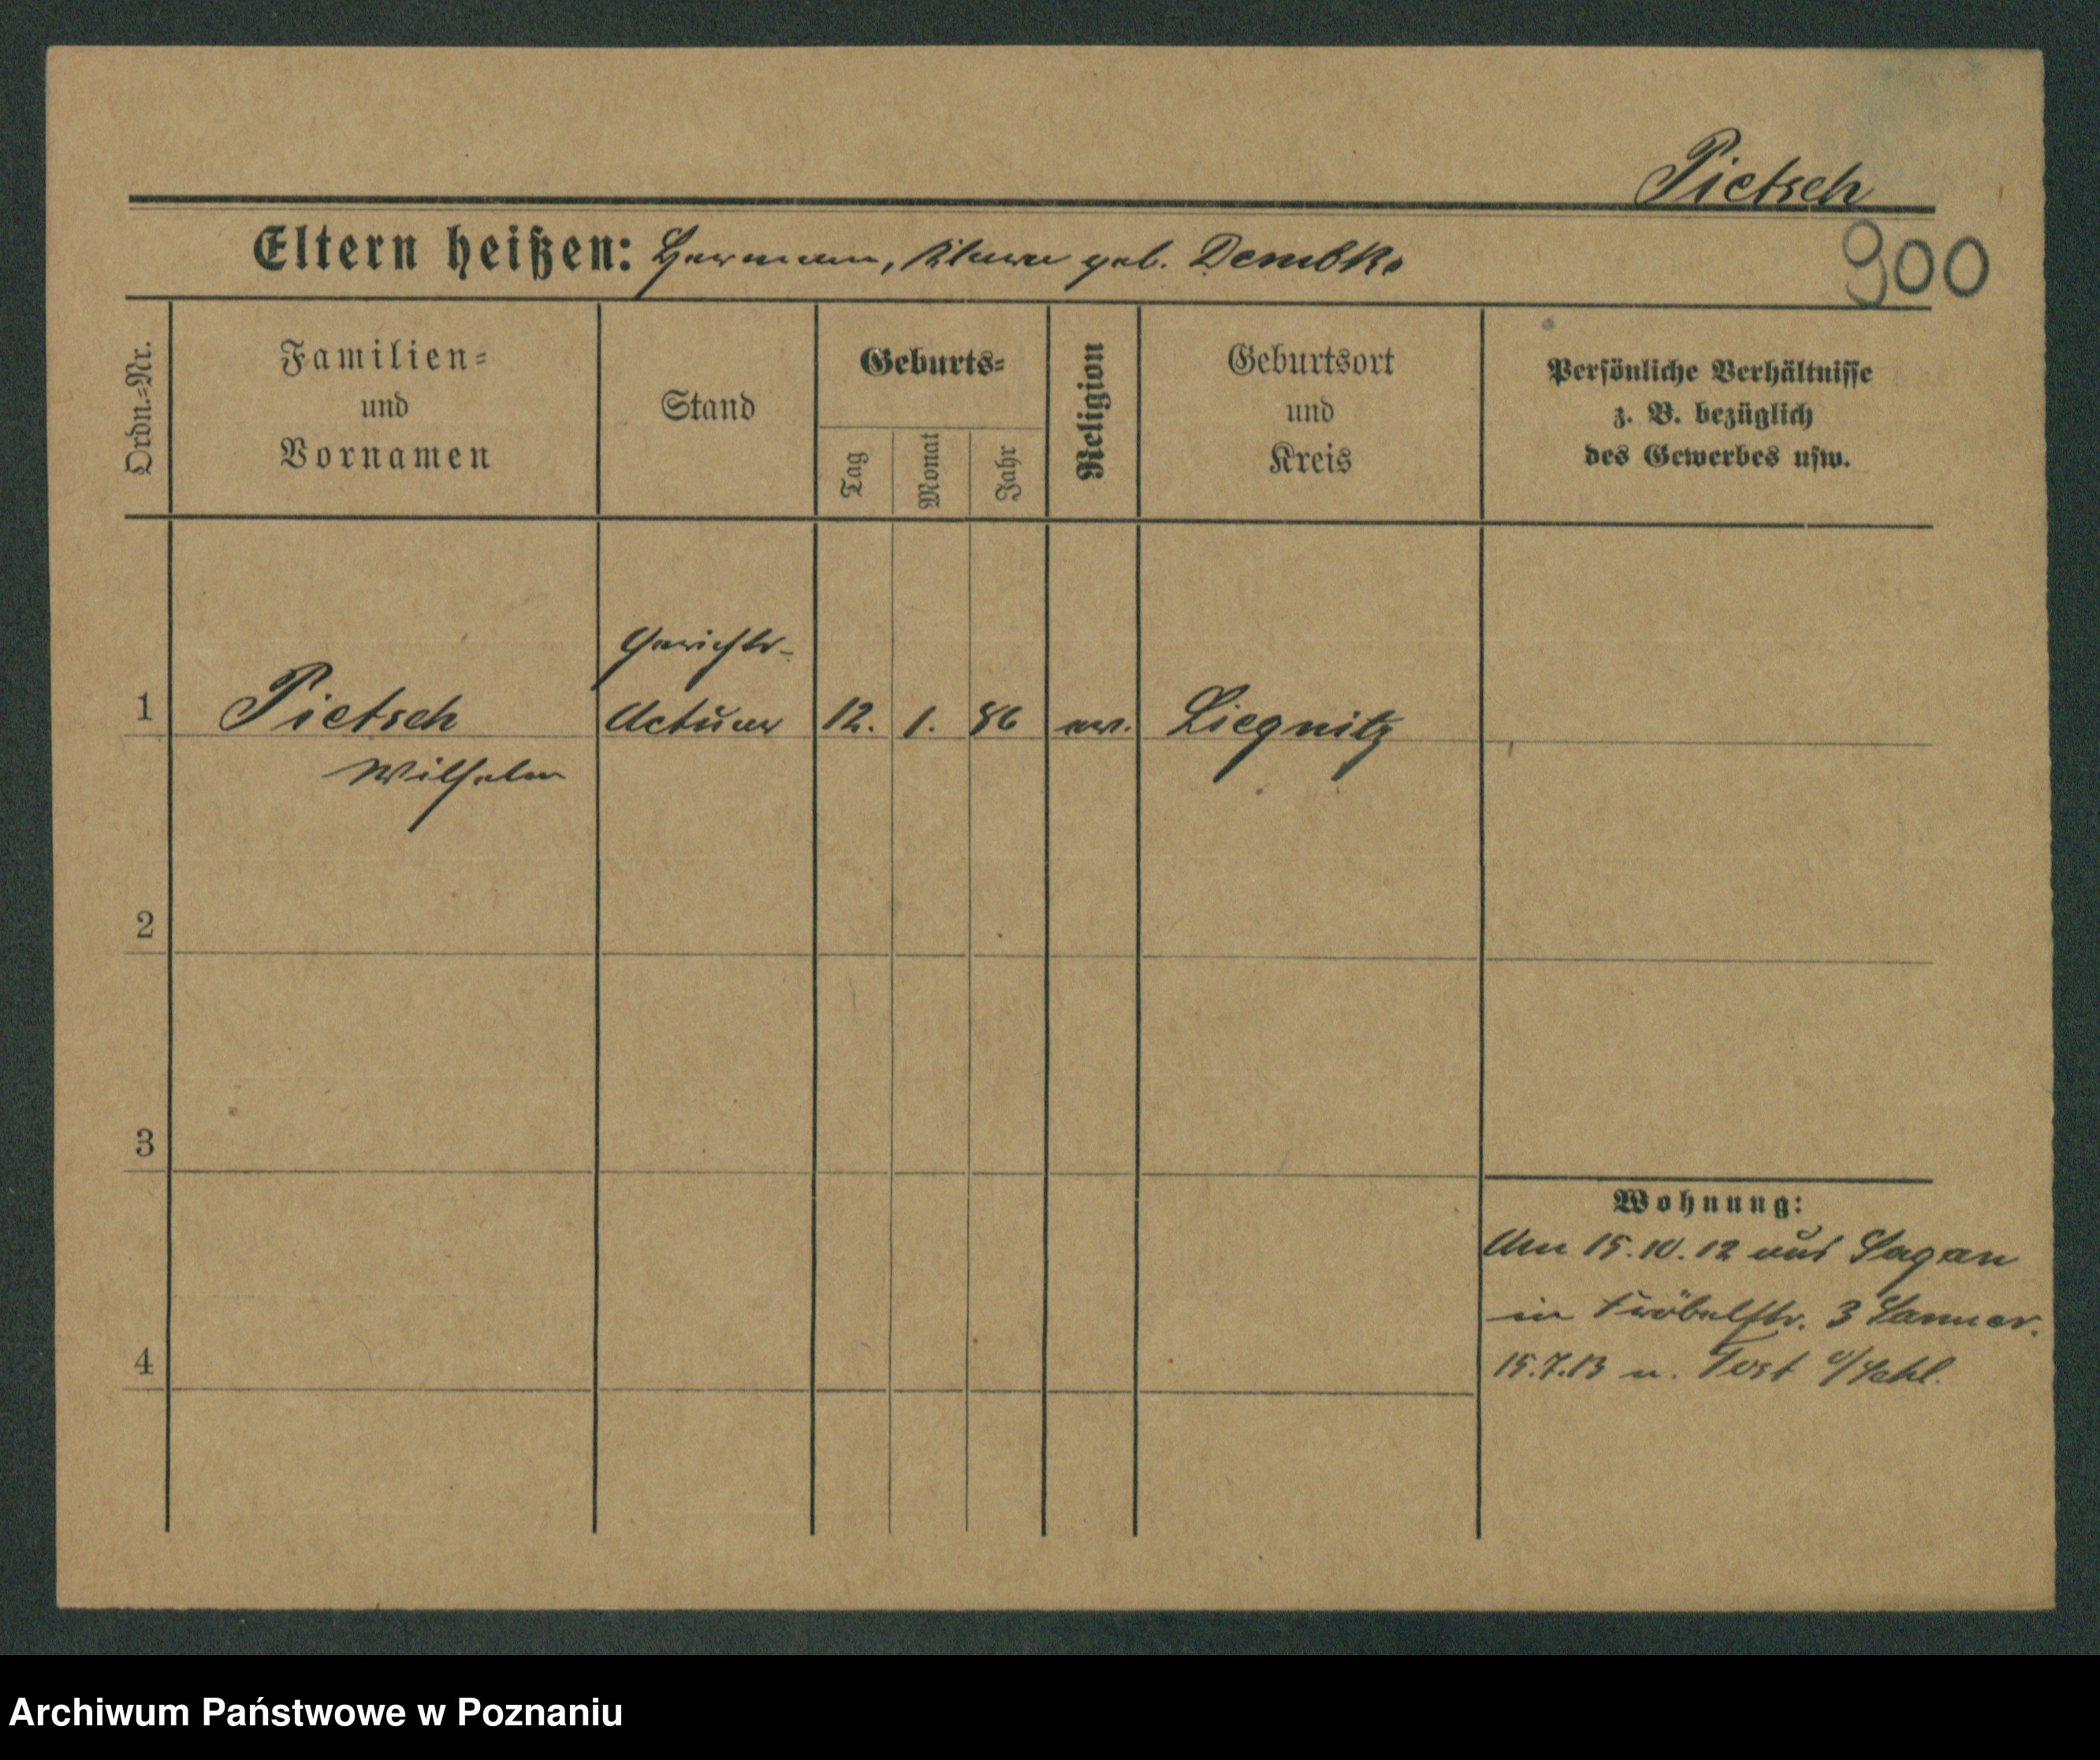 Pietsch
Eltern heißen: Hermann, Klara geb. Dembke
900
Ordn.=Nr.
Familien=
und
Vornamen
Stand
Geburts=
Tag
Monat
Jahr
Religion
Geburtsort
und
Kreis
Persönliche Verhältnisse
z. B. bezüglich
des Gewerbes usw.
Gerichts-
1 Pietsch Actuar 12. 1. 86 ev. Liegnitz
Wilhelm
2
3
4
Wohnung:
Am 15.10.12 aus Sagan
in Fröbelstr. 3
15.7.13 n. Tost O/Schl.
Archiwum Państwowe w Poznaniu